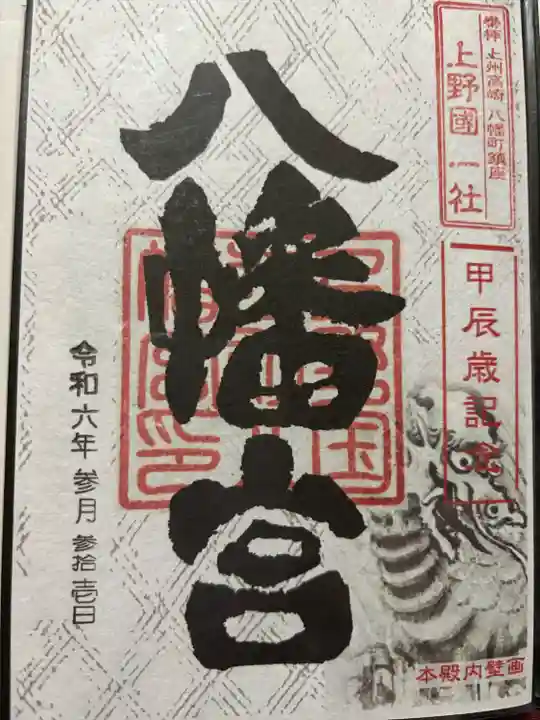 奉拝 上州高崎 八幡町鎮座
上野國一社
甲辰歳記念
八幡宮
令和六年参月参拾壱日
本殿内壁画